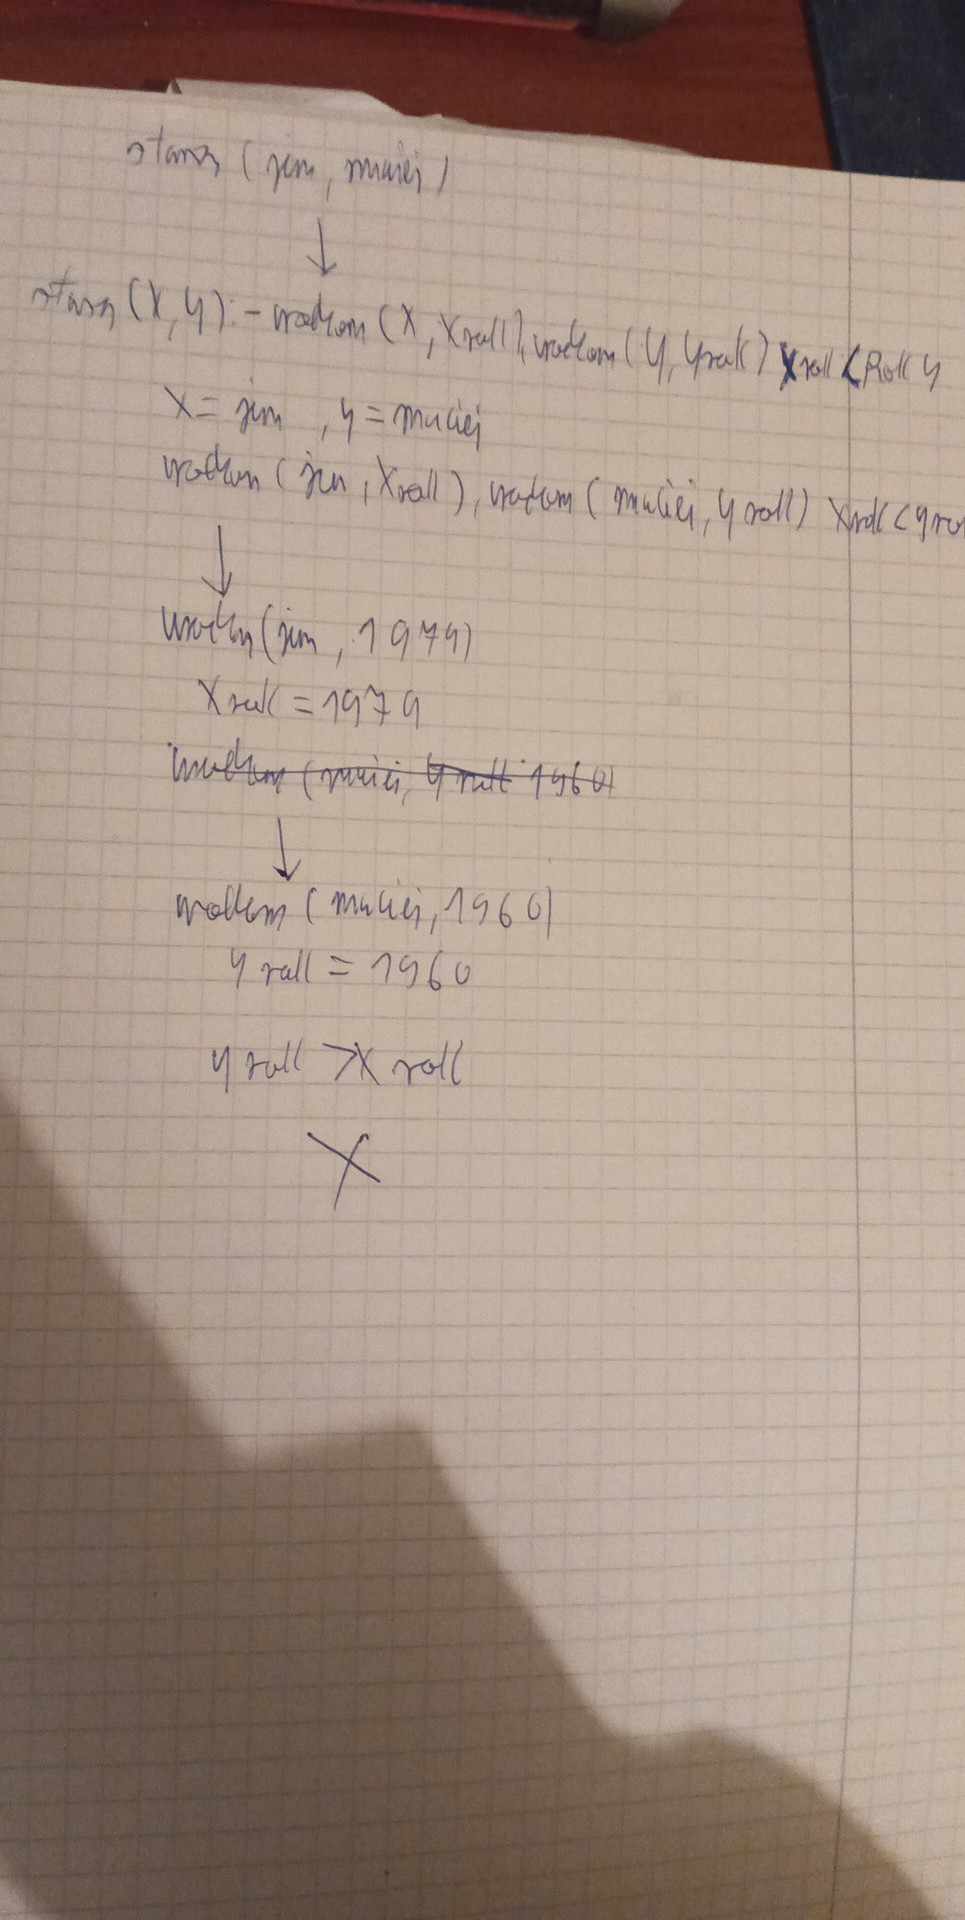 starszy (jim, maciej)
starszy (X, Y) :- urodzony (X, Xrok), urodzony (Y, Yrok) Xrok < Rok Y
X = jim, Y = maciej
urodzony (jim, Xrok), urodzony (maciej, Yrok) Xrok < Yro
urodzony (jim, 1979)
Xrok = 1979
urodzony (maciej, Yrok 1960)
urodzony (maciej, 1960)
Yrok = 1960
Yrok > Xrok
X